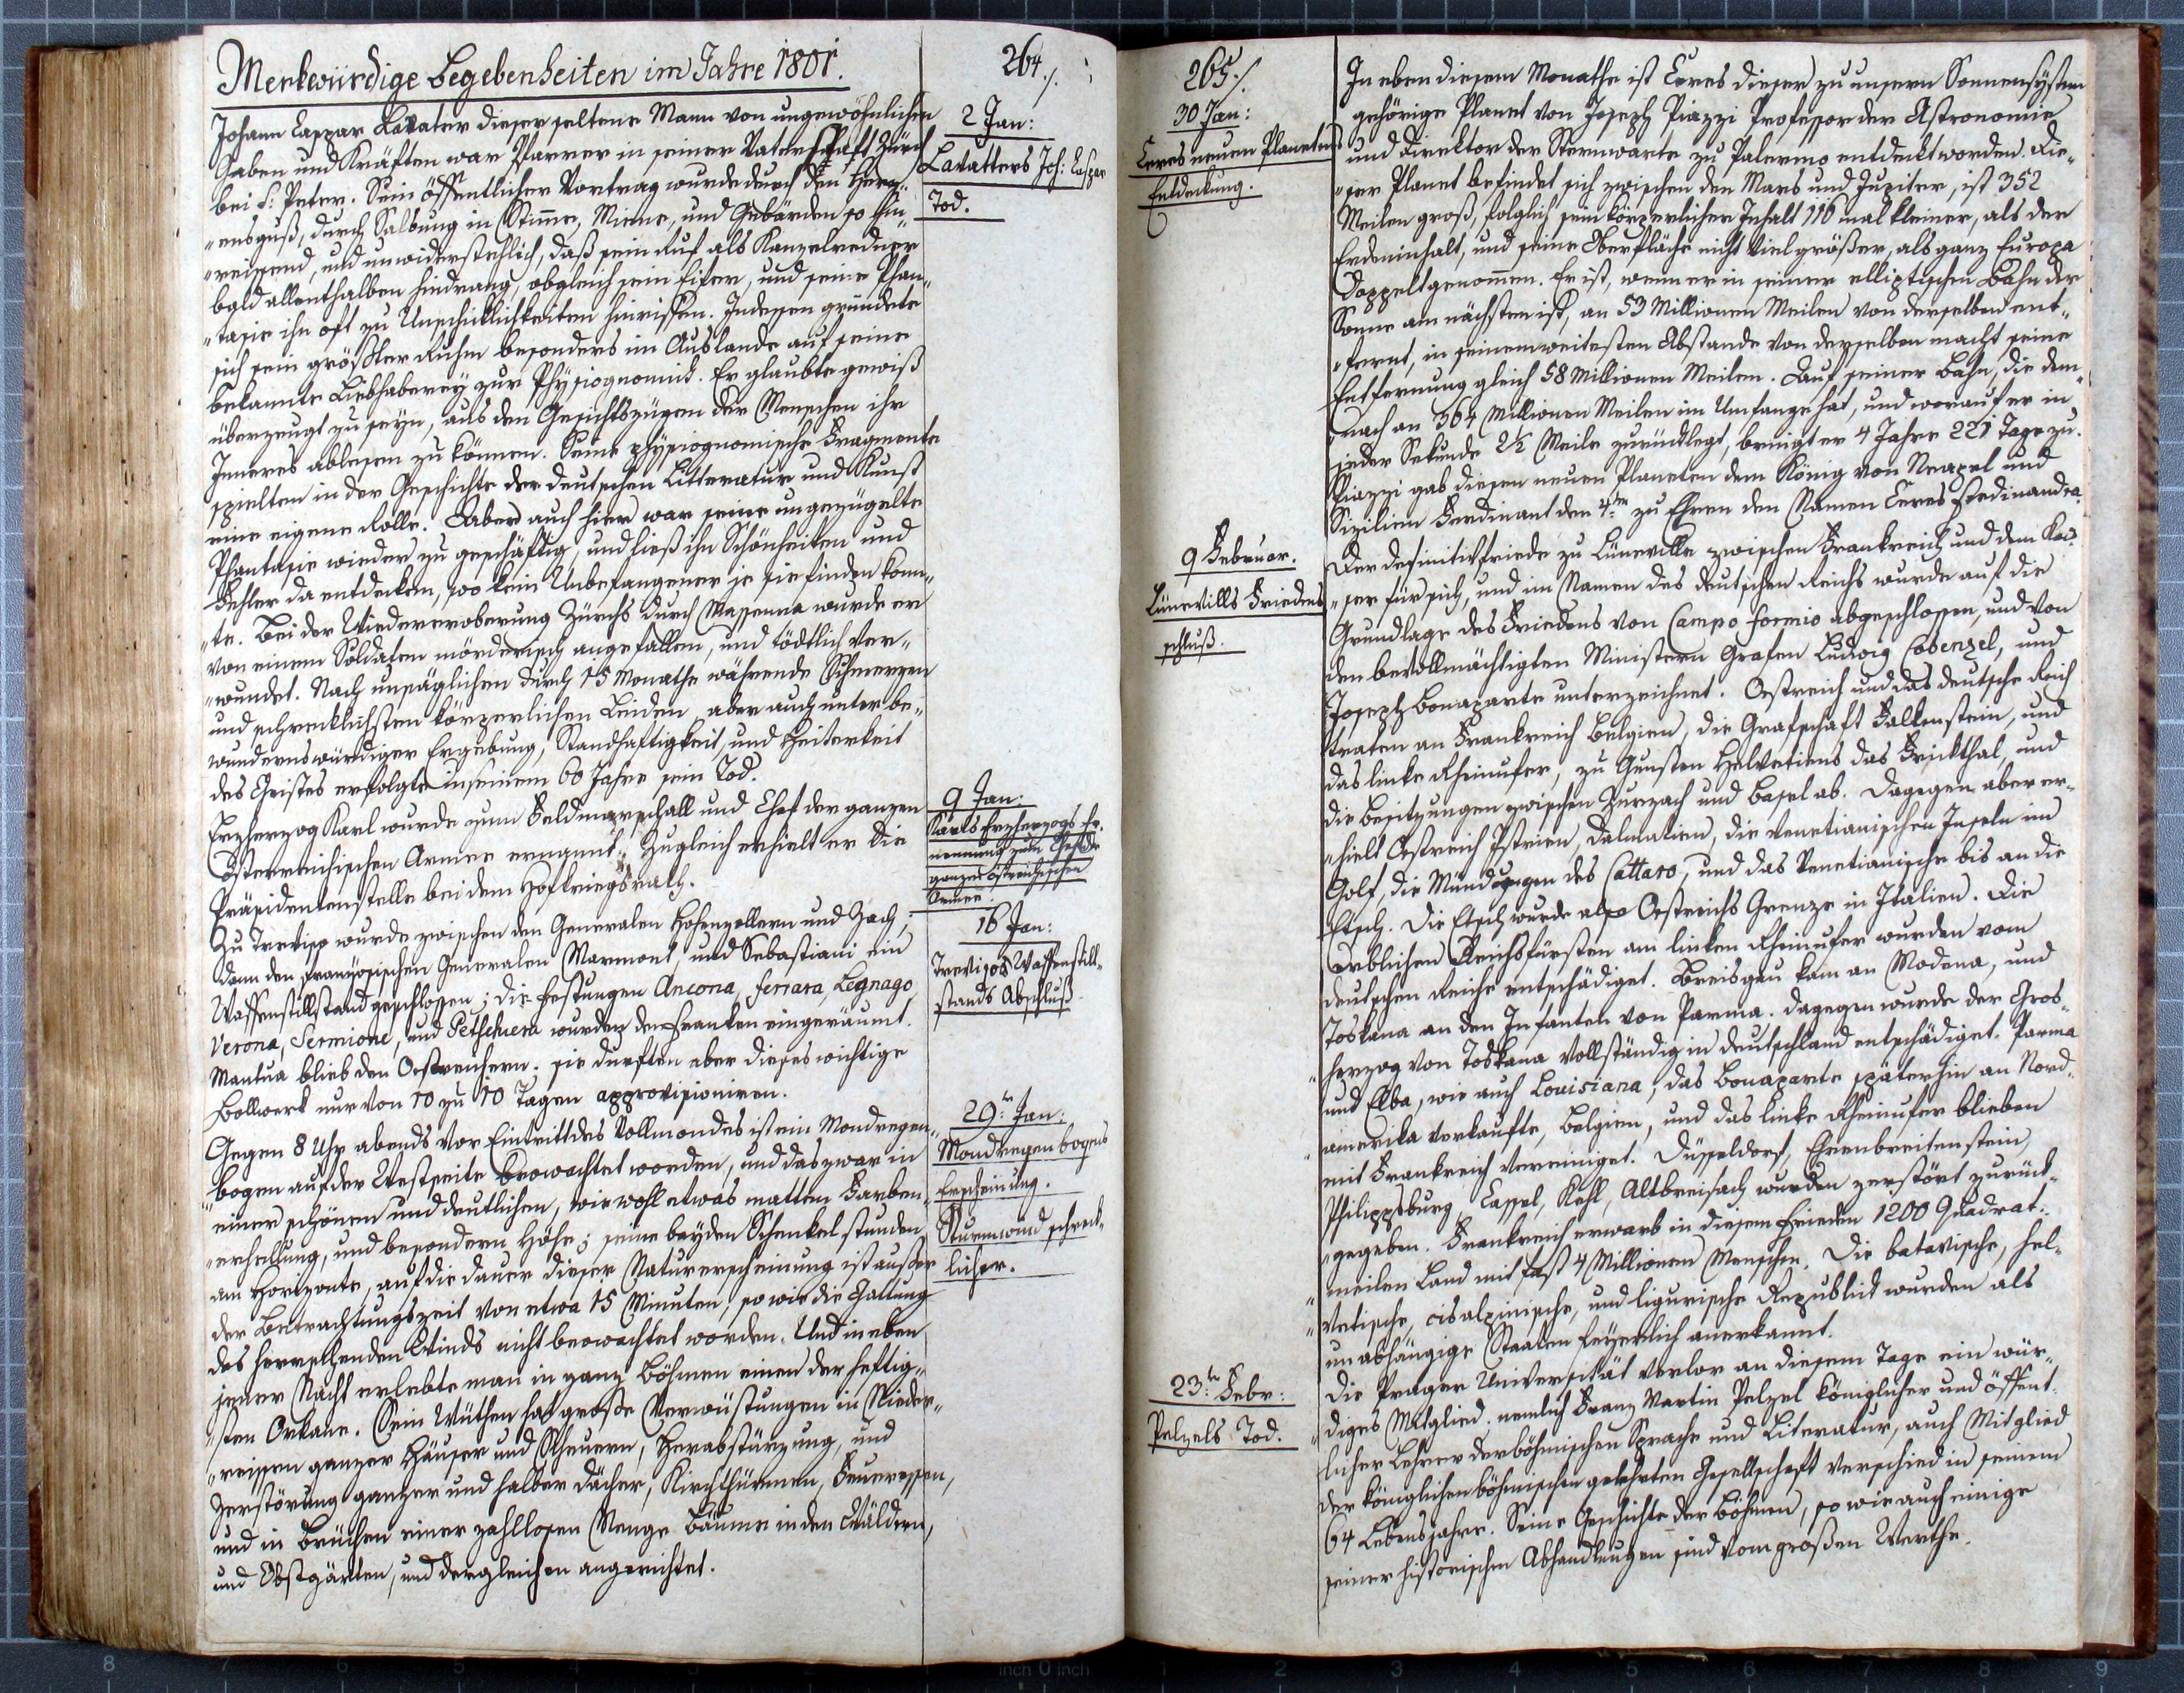 Merkwürdige Begebenheiten im Jahre 1801.
264./.
Johann Caspar Lavater dieser seltene Mann von ungewöhnlichen
Gaben und Kräften war Pfarrer in seiner Vaterstadt Zürch
bei S: Peter. Sein öffentlicher Vortrag wurde durch den Herz„
„ensguß, durch Salbung in Stimme, Miene, und Gebärden so hin„
„reissend, und unwiderstehlich, daß sein Ruf als Kanzelredner
bald allenthalben hindrang, obgleich sein Eifer, und seine Phan„
„tasie ihn oft zu Unschicklichkeiten hinrissen. Indessen gründete
sich sein größter Ruhm besonders im Auslande auf seine
bekannte Liebhaberey zur Physiognomik. Er glaubte gewiß
überzeugt zu seyn, aus den Gesichtszügen der Menschen ihr
Inneres ablesen zu können. Seine physiognomische Fragmente
spielten in der Geschichte der deutschen Litteratur und Kunst
eine eigene Rolle. Aber auch hier war seine ungezügelte
Phantasie wieder zu geschäftig, und ließ ihn Schönheiten und
Fehler da entdecken, wo kein Unbefangener je sie finden konn„
„te. Bei der Wiedereroberung Zürchs durch Massenna wurde er
von einem Soldaten mörderisch angefallen, und tödtlich ver„
„wundet. Nach unsäglichen durch 15 Monathe währende Schmerzen
und schrecklichsten körperlichen Leiden aber auch unter be„
wundernswürdiger Ergebung, Standhaftigkeit, und Heiterkeit
des Geistes erfolgte in seinem 60 Jahre sein Tod.
Erzherzog Karl wurde zum Feldmarschall und Chef der ganzen
Österreichischen Armee ernannt, zugleich erhielt er die
Präsidentenstelle bei dem Hofkriegsrath.
Zu Treviso wurde zwischen den Generalen Hohenzollern und Zach,
dann den französischen Generalen Marmont, und Sebastiani ein
Waffenstillstand geschlossen; die Festungen Ancona, ferrara, Legnago,
Verona, Sermione, und Petschiera wurden den Franken eingeräumt.
Mantua blieb den Oestreichern. sie durften aber dieses wichtige
Bollwerk nur von 10 zu 10 Tagen approvisioniren.
Gegen 8 Uhr abends vor Eintritt des Vollmondes ist ein Mondregen„
bogen auf der Westseite beowachtet worden, und das zwar in
„einer schönen und deutlichen, wie wohl etwas matten Farben„
„erhellung, und besondern Höhe; seine beyden Schenkel stunden
am Horizonte, auf die dauer dieser Naturerscheinung ist ausser
der Betrachtungszeit von etwa 15 Minuten, so wie die Gattung
des herrschenden Winds nicht beowachtet worden. Und in eben
jener Nacht erlebte man in ganz Böhmen einen der heftig„
„sten Orkane. Sein Wüthen hat große Verwüstungen in Nieder„
„reissen ganzer Häuser und Scheuern, Herabstürzung, und
Zerstörung ganzer und halber dächer, Kirchthürmen, Feueressen,
und in Brüchen einer zahllosen Menge Bäume in den Wäldern,
und Obstgärten, und dergleichen angerichtet.
2 Jan:
Lavatters Joh: Caspar
Tod.
9 Jan:
Karls Erzherzogs Er„
nennung zum Chef der
ganzen östreichischen
Armee.
16 Jan:
Trevisos Waffenstill„
stands Abschluß.
29.te Jan:
Mondregenbogens
Erscheinung.
Sturmwind schreck„
licher.
265./.
30 Jan:
Ceres neuen Planetens
Entdeckung.
9 Februar.
Lünevills Friedens
schluß.
23.te Febr:
Pelzels Tod.
In eben diesem Monathe ist Ceres dieser zu unsern Sonnensystem
gehörige Planet von Joseph Piazzi Professor der Astronomie
und Direktor der Sternwarte zu Palermo entdeckt worden. Die„
„ser Planet befindet sich zwischen den Mars und Jupiter, ist 352
Meilen groß, folglich sein körperlicher Inhalt 116 mal kleiner, als der
Erdeninhalt, und seine Oberfläche nicht viel größer, als ganz Europa
doppelt genommen. Er ist, wenn er in seiner elliptischen Bahn der
Sonne am nächsten ist, an 53 Millionen Meilen von derselben ent„
„fernt, in seinem weitesten Abstande von derselben macht seine
Entfernung gleich 58 Millionen Meilen. Auf seiner Bahn, die dem„
„nach an 364 Millionen Meilen im Umfange hat, und worauf er in
jeder Sekunde 2½ Meile zurücklegt, bringt er 4 Jahre 221 Tage zu.
Piazzi gab diesen neuen Planeten dem König von Neapel und
Sizilien Ferdinant den 4.ten zu Ehren den Namen Ceres Ferdinandea.
Der Definitivfriede zu Lüneville zwischen Frankreich und dem Kai„
„ser für sich, und im Namen des deutschen Reichs wurde auf die
Grundlage des Friedens von Campo formio abgeschlossen, und von
den bevollmächtigten Ministern Grafen Ludwig Cobenzel, und
Joseph Bonaparte unterzeichnet. Oestreich und das deutsche Reich
traten an Frankreich Belgien, die Grafschaft Falkenstein, und
das linke Rheinufer, zu Gunsten Helvetiens das Frickthal, und
die Besitzungen zwischen Zurzach und Basel ab. Dagegen aber er„
„hielt Oestreich Istrien, Dalmatien, die venetianischen Inseln im
Golf, die Mündungen des Cattaro, und das Venetianische bis an die
Etsch. Die Etsch wurde also Oestreichs Grenze in Italien. Die
erblichen Reichsfürsten am linken Rheinufer wurden vom
deutschen Reiche entschädiget. Breisgau kam an Modena, und
Toskana an den Infanten von Parma. dagegen wurde der Gros„
„herzog von Toskana vollständig in deutschland entschädiget. Parma
und Elba, wie auch Louisiana, das Bonaparte späterhin an Nord„
„amerika verkaufte, Belgien, und das linke Rheinufer blieben
mit Frankreich vereiniget. Düsseldorf, Ehrenbreitenstein,
Philippsburg, Cassel, Kehl, Altbreisach wurden zerstört zurück„
„gegeben. Frankreich erwarb in diesem Frieden 1200 Quadrat„
„meilen Land mit fast 4 Millionen Menschen. Die batavische, hel„
„vetische, cisalpinische, und ligurische Republick wurden als
unabhängige Staaten feyerlich anerkannt.
Die Prager Universität verlor an diesem Tage ein wür„
„diges Mitglied. nemlich Franz Martin Pelzel königlicher und öffent„
licher Lehrer der böhmischen Sprache und Literatur, auch Mitglied
der königlichen böhmischen gelehrten Gesellschaft verschied in seinem
64 Lebensjahre. Seine Geschichte der Böhmen, so wie auch einige
seiner historischen Abhandlungen sind vom großen Werthe.
8 7 6 5 4 3 2 1 inch 0 inch 1 2 3 4 5 6 7 8 9